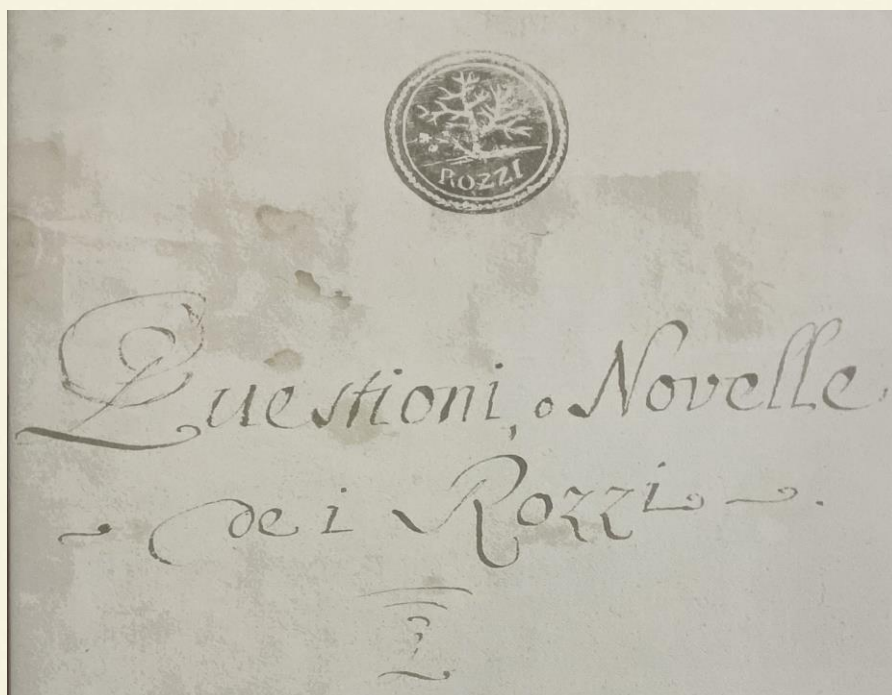 ROZZI
Questioni, o Novelle
dei Rozzi.